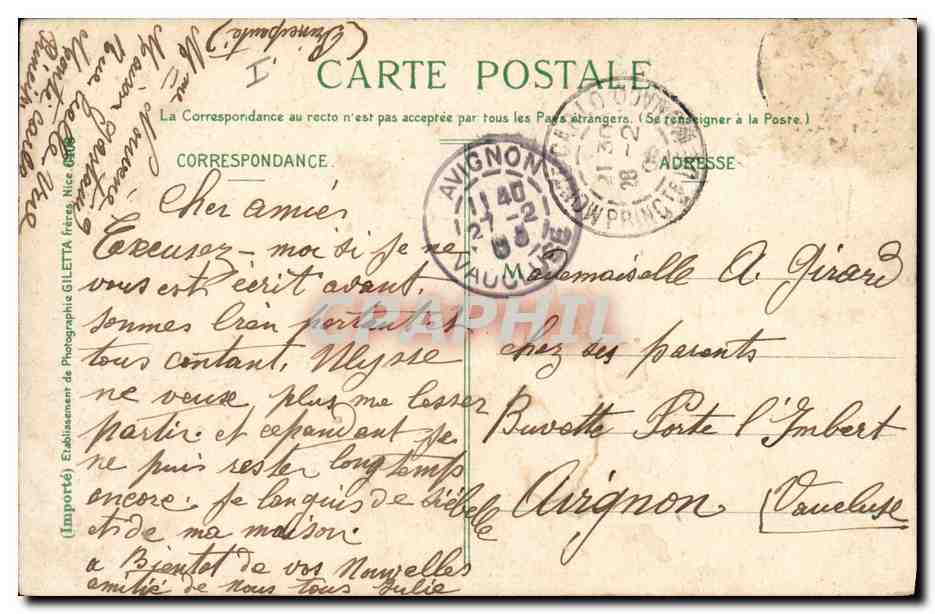 (Principauté)
CARTE POSTALE
La Correspondance au recto n'est pas acceptée par tous les Pays étrangers. (Se renseigner à la Poste.)
CORRESPONDANCE
ADRESSE
AVIGNON
11 40
27 -2
VAUCLUSE
21 30
28 -2
Cher amies
Excusez-moi si je ne
vous est écrit avant.
sommes bien portant et
tous contant, Ulysse
ne veuse plus me lesser
partir. et cependant je
ne puis rester longtemp
encore. je languis de
et de ma maison.
a Bientot de vos Nouvelles
amitié de nous tous Julie
Mademoiselle A. Girard
chez ses parents
Buvette Porte l'Imbert
Avignon (Vaucluse
Mme
Maison
Rue
Monte-Carlo
(Importé) Etablissement de Photographie GILETTA frères, Nice
CPAPHIL